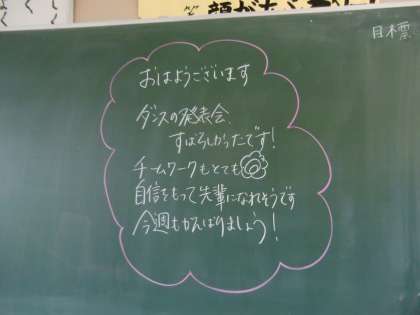 目標
おはようございます
ダンスの発表会、
すばらしかったです!
チームワークもとても
自信をもって先輩になれそうです
今週もがんばりましょう!